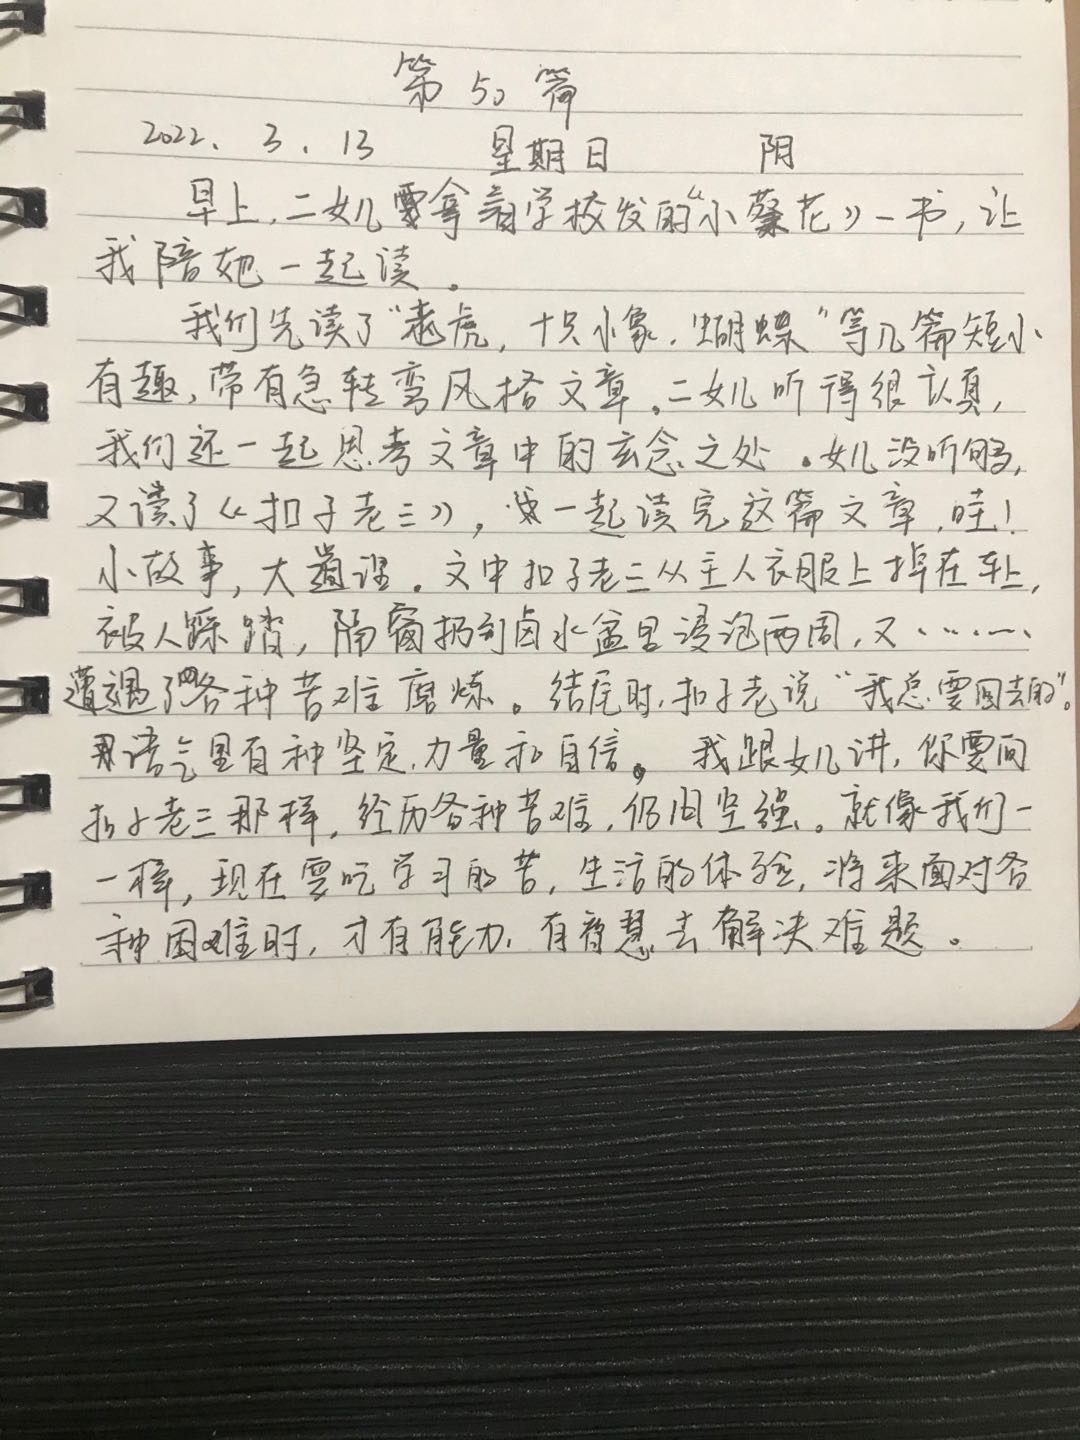 第50篇
2022. 3. 13 星期日 阴
早上,二女儿要拿着学校发的“小葵花》一书,让
我陪她一起读。
我们先读了“老虎,十只小象,蝴蝶”等几篇短小
有趣,带有急转弯风格文章。二女儿听得很认真,
我们还一起思考文章中的玄念之处。女儿没听够,
又读了《扣子老三》,我一起读完这篇文章,哇!
小故事,大道理。文中扣子老三从主人衣服上掉在车上,
被人踩踏,隔窗扔到卤水盆里浸泡两周,又……
遭遇了各种苦难磨炼。结尾时,扣子老说“我总要回去的”。
语气里有种坚定,力量和自信。我跟女儿讲,你要向
扣子老三那样,经历各种苦难,仍旧坚强。就像我们一
一样,现在要吃学习的苦,生活的体验,将来面对各
种困难时,才有能力,有智慧去解决难题。